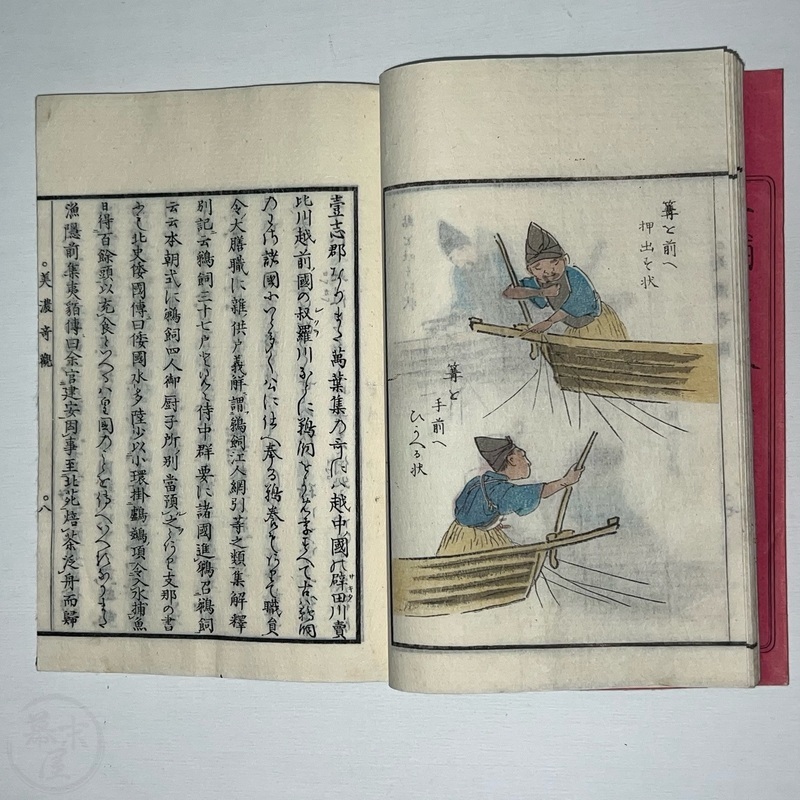 篝を前へ
押出す状
篝を
手前へ
ひかへる状
壹志郡 萬葉集乃哥に越中國の辟田川賣
サキタ
比川越前國の叔羅川などに鵜飼を 古へ鵜飼
乃わざ諸國にいと多く公に仕へ奉る鵜養もありて職員
令大膳職に雜供戸義解謂鵜飼江人網引等之類集解釋
別記云鵜飼三十七戸と見え侍中群要に諸國進鵜召鵜飼
云云本朝式に鵜飼四人御厨子所別當預之とあり支那の書
にも北史倭國傳曰倭國水多陸少以小環掛鸕鷀項令入水捕魚
日得百餘頭以充食といへるハ皇國乃ことを傳へいへるなりまた
漁隱前集夷貊傳曰余官建安因事至北苑焙茶泛舟而歸
○美濃奇觀
○八